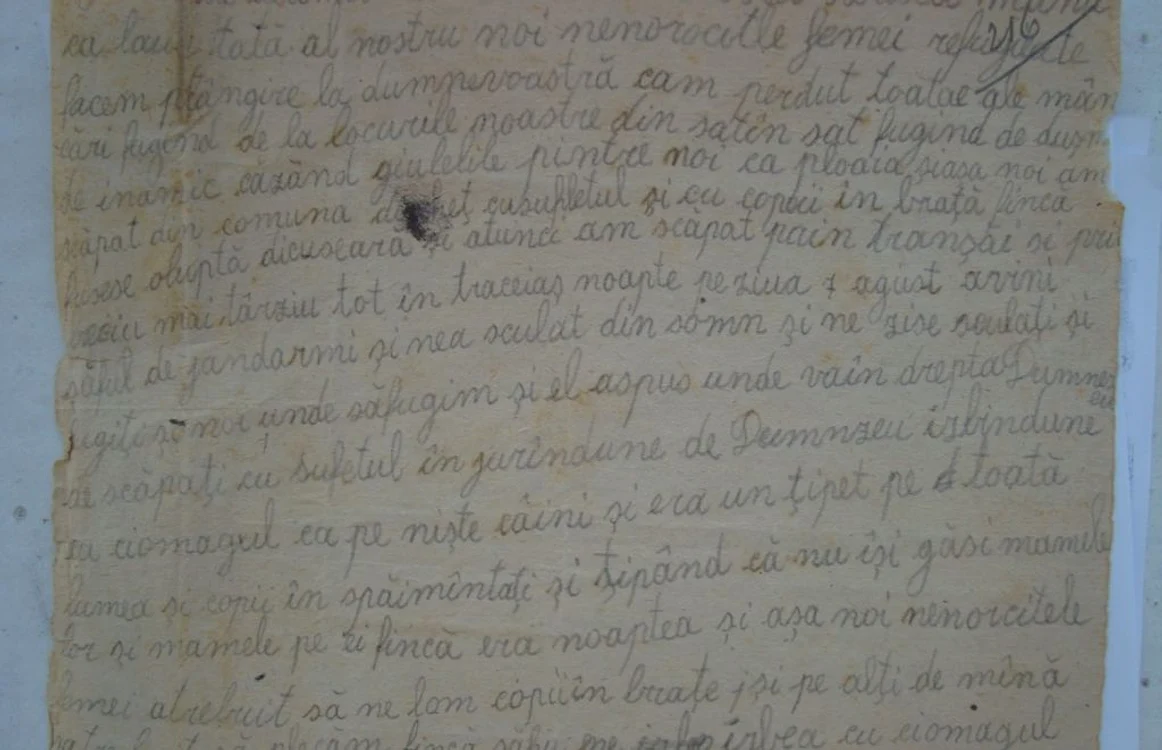 ca la un tată al nostru noi nenorocitle femei refugiate
216
facem plângire la dumnevoastră cam perdut toatae ale mân
cări fugind de la locurile noastre din satîn sat fugind de dușm
de inamic căzând giulelile pintre noi ca ploaia șiașa noi am
scăpat din comuna cusufletul și cu copiii în brață fincă
fusese oluptă dicuseara și atunci am scăpat prin tranșăi si prin
mai târziu tot în traceiaș noapte pe ziua 7 agust avini
sătul de jandarmi și nea sculat din somn și ne zise sculați și
fugiți și noi unde săfugim și el aspus unde vaîn drepta Dumnez
eu
scăpați cu sufetul în jurîndune de Dumnzeu izbindune
cu ciomagul ca pe niște câini și era un țipet pe toată
lumea și copii în spăimîntați și țipând că nu își găsi mamele
lor și mamele pe ei fincă era noaptea și așa noi nenorcitele
femei atrebuit să ne lom copiiîn brațe și pe alți de mînă
plecăm fincă ne izbea cu ciomagul